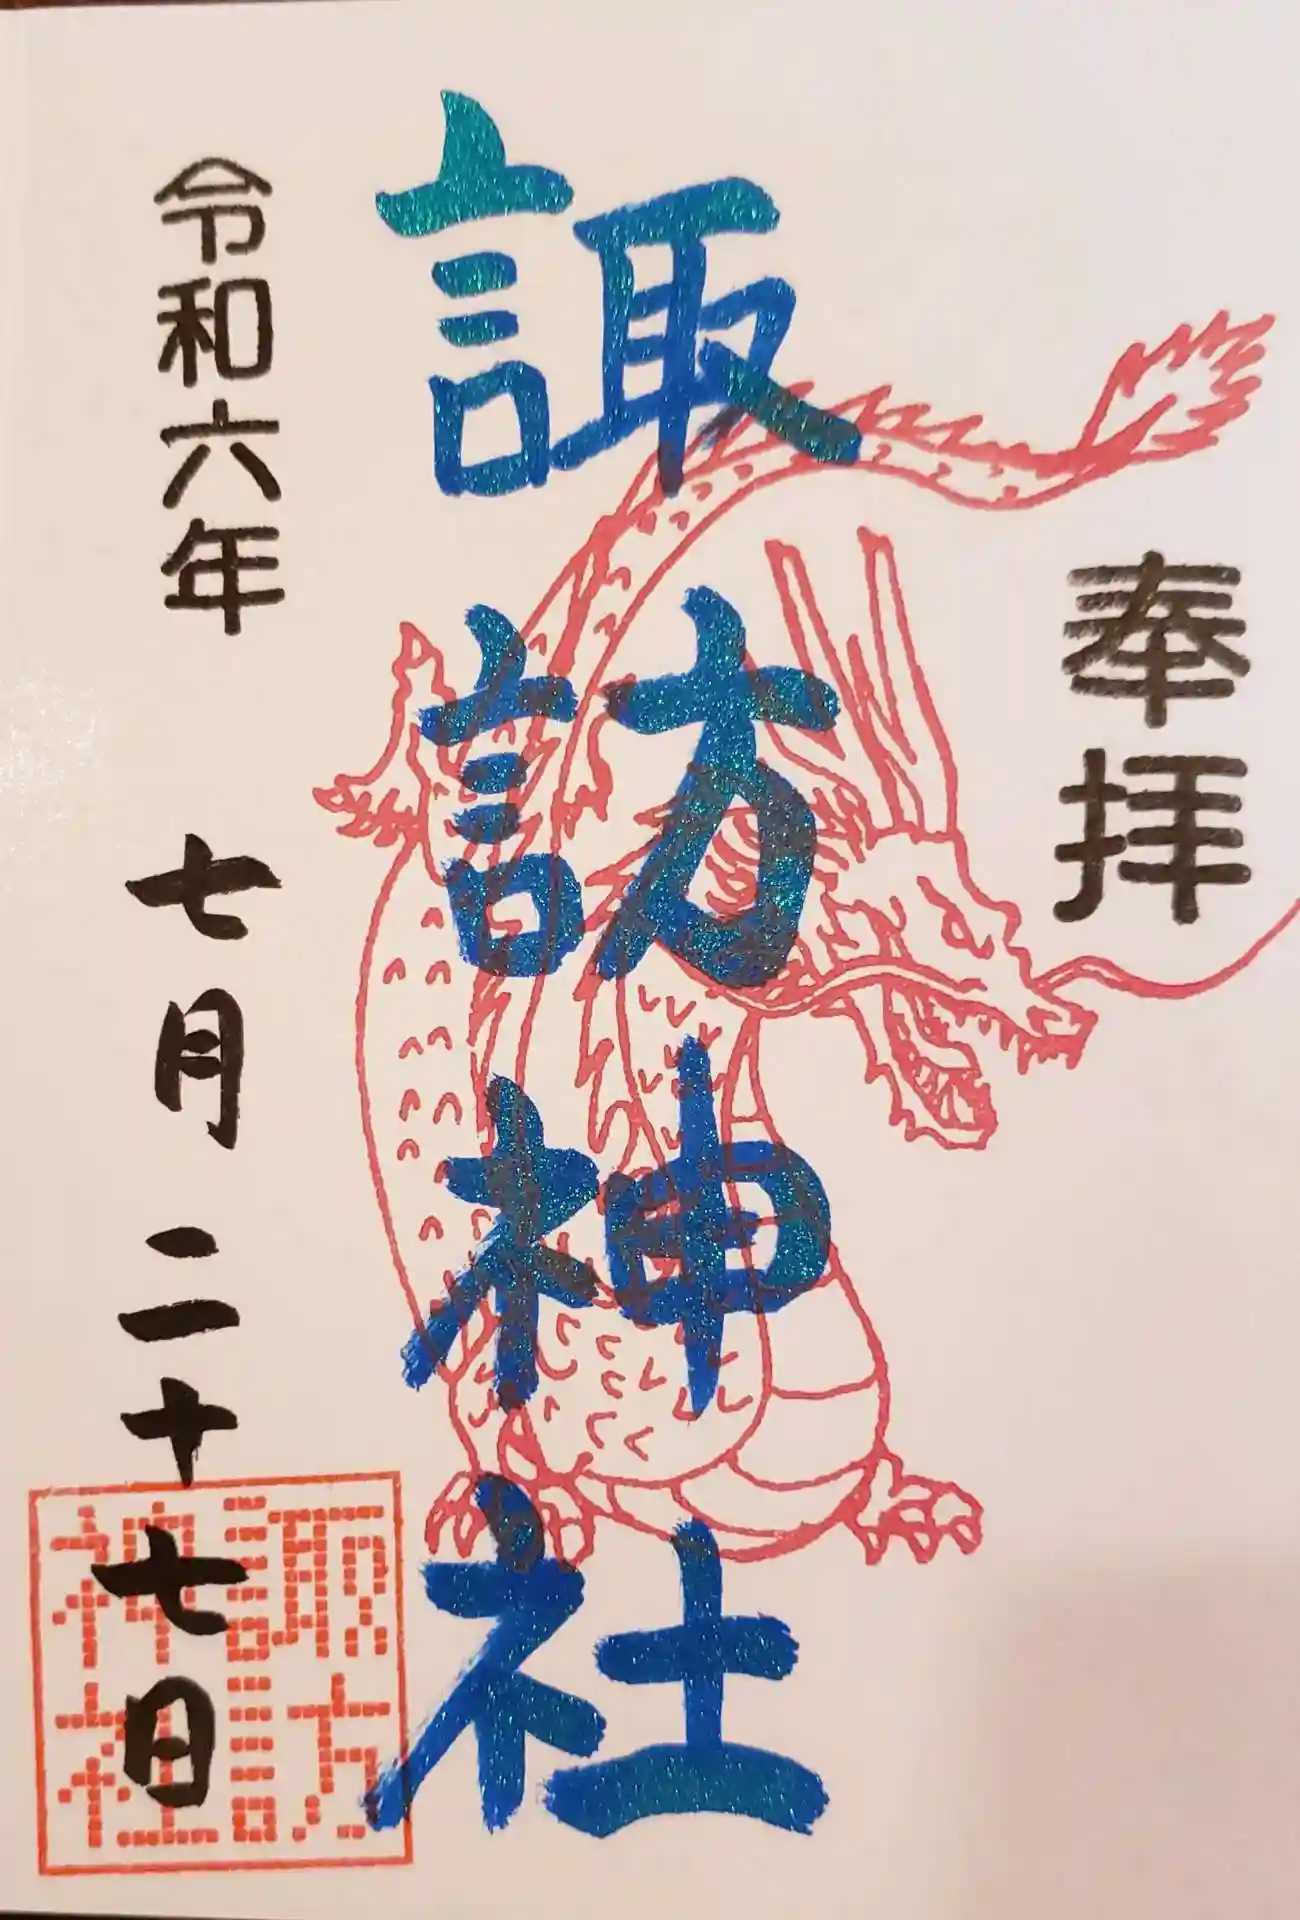 奉拝
諏訪神社
令和六年 七月二十七日
諏訪
神社